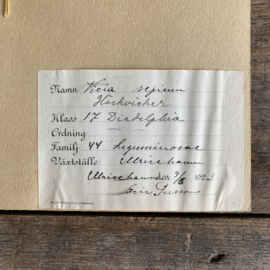 Namn Vicia sepium
Häckvicker
Klass 17 Diadelphia
Ordning
Familj 44 Leguminosae
Växtställe Ulricehamn
Ulricehamn den 9/8 192
Eric